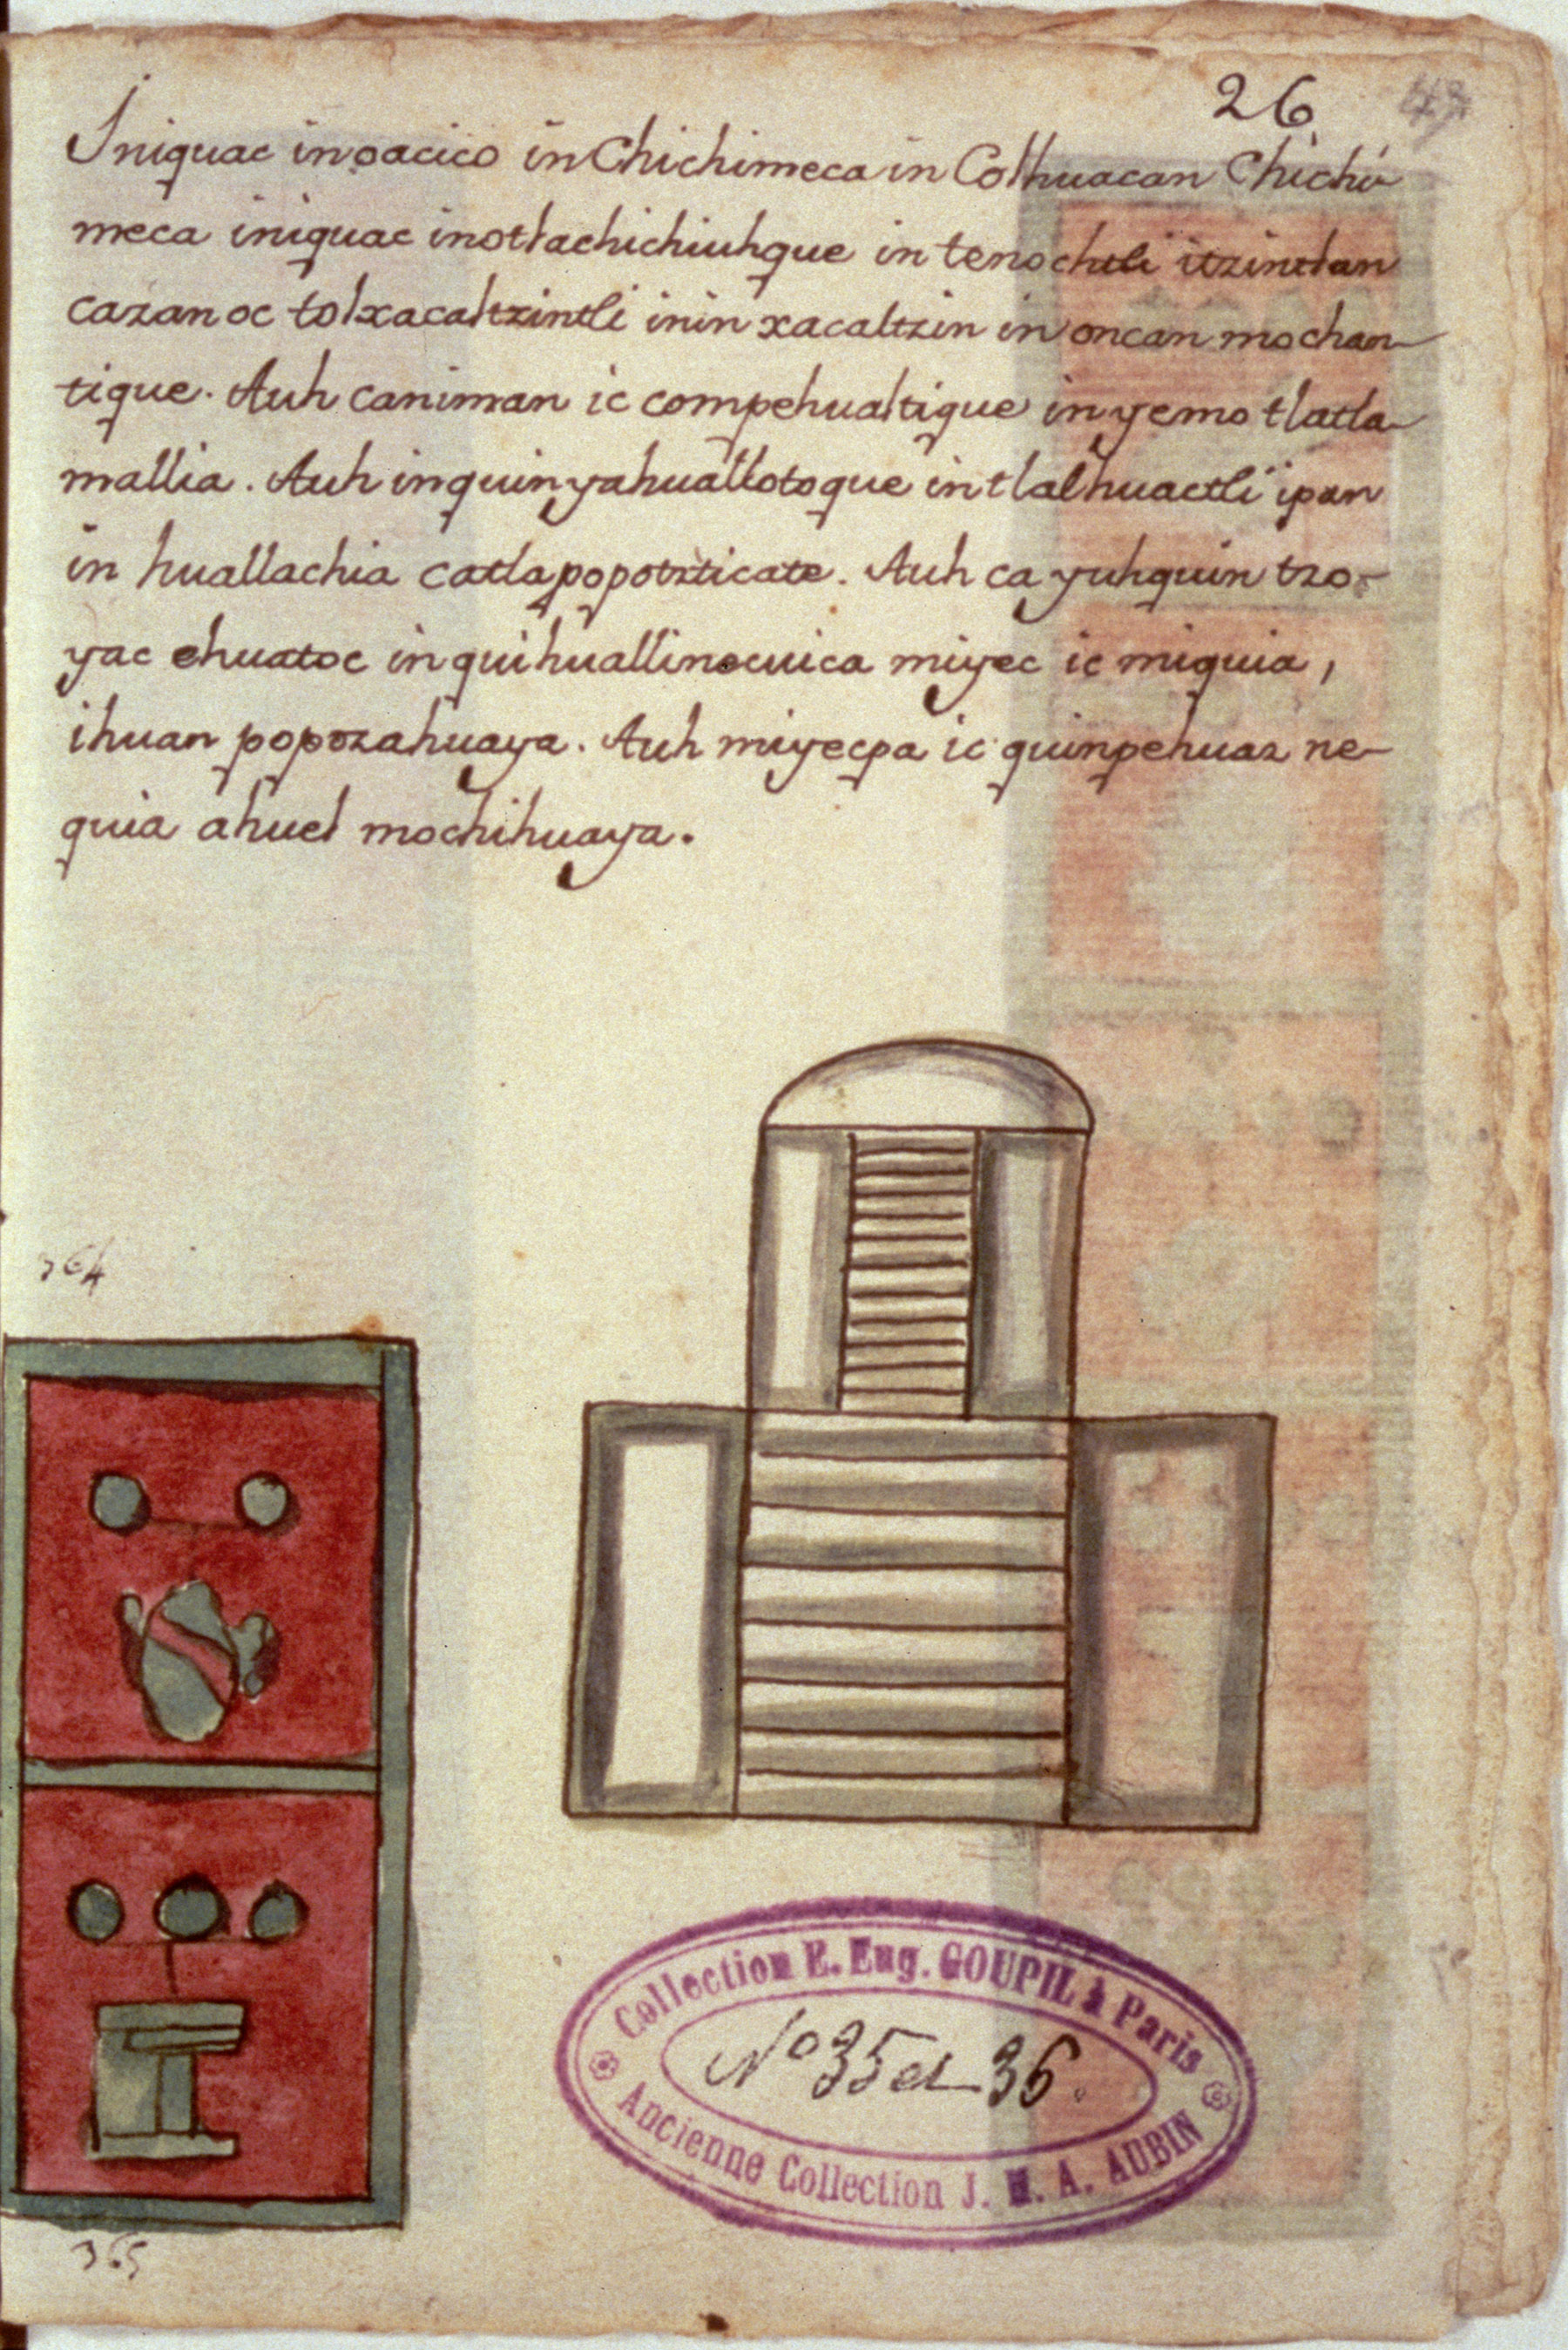 26
Iniquac inoacico in Chichimeca in Colhuacan Chichi
meca iniquac inotlachichiuhque in tenochtli itzintlan
cazan oc tolxacaltzintli inin xacaltzin in oncan mochan-
tique. Auh caniman ic compehualtique in yemo tlatla-
mallia. Auh inquinyahuallotoque in tlalhuactli ipan
in huallachia catlapopotzticate. Auh ca yuhquin tzo-
yac ehuatoc in quihuallinecuica miyec ic miquia,
ihuan popozahuaya. Auh miyecpa ic quinpehuaz ne-
quia ahuel mochihuaya.
364
365
Collection E. Eug. GOUPIL à Paris
No 35 et 36.
Ancienne Collection J. M. A. AUBIN